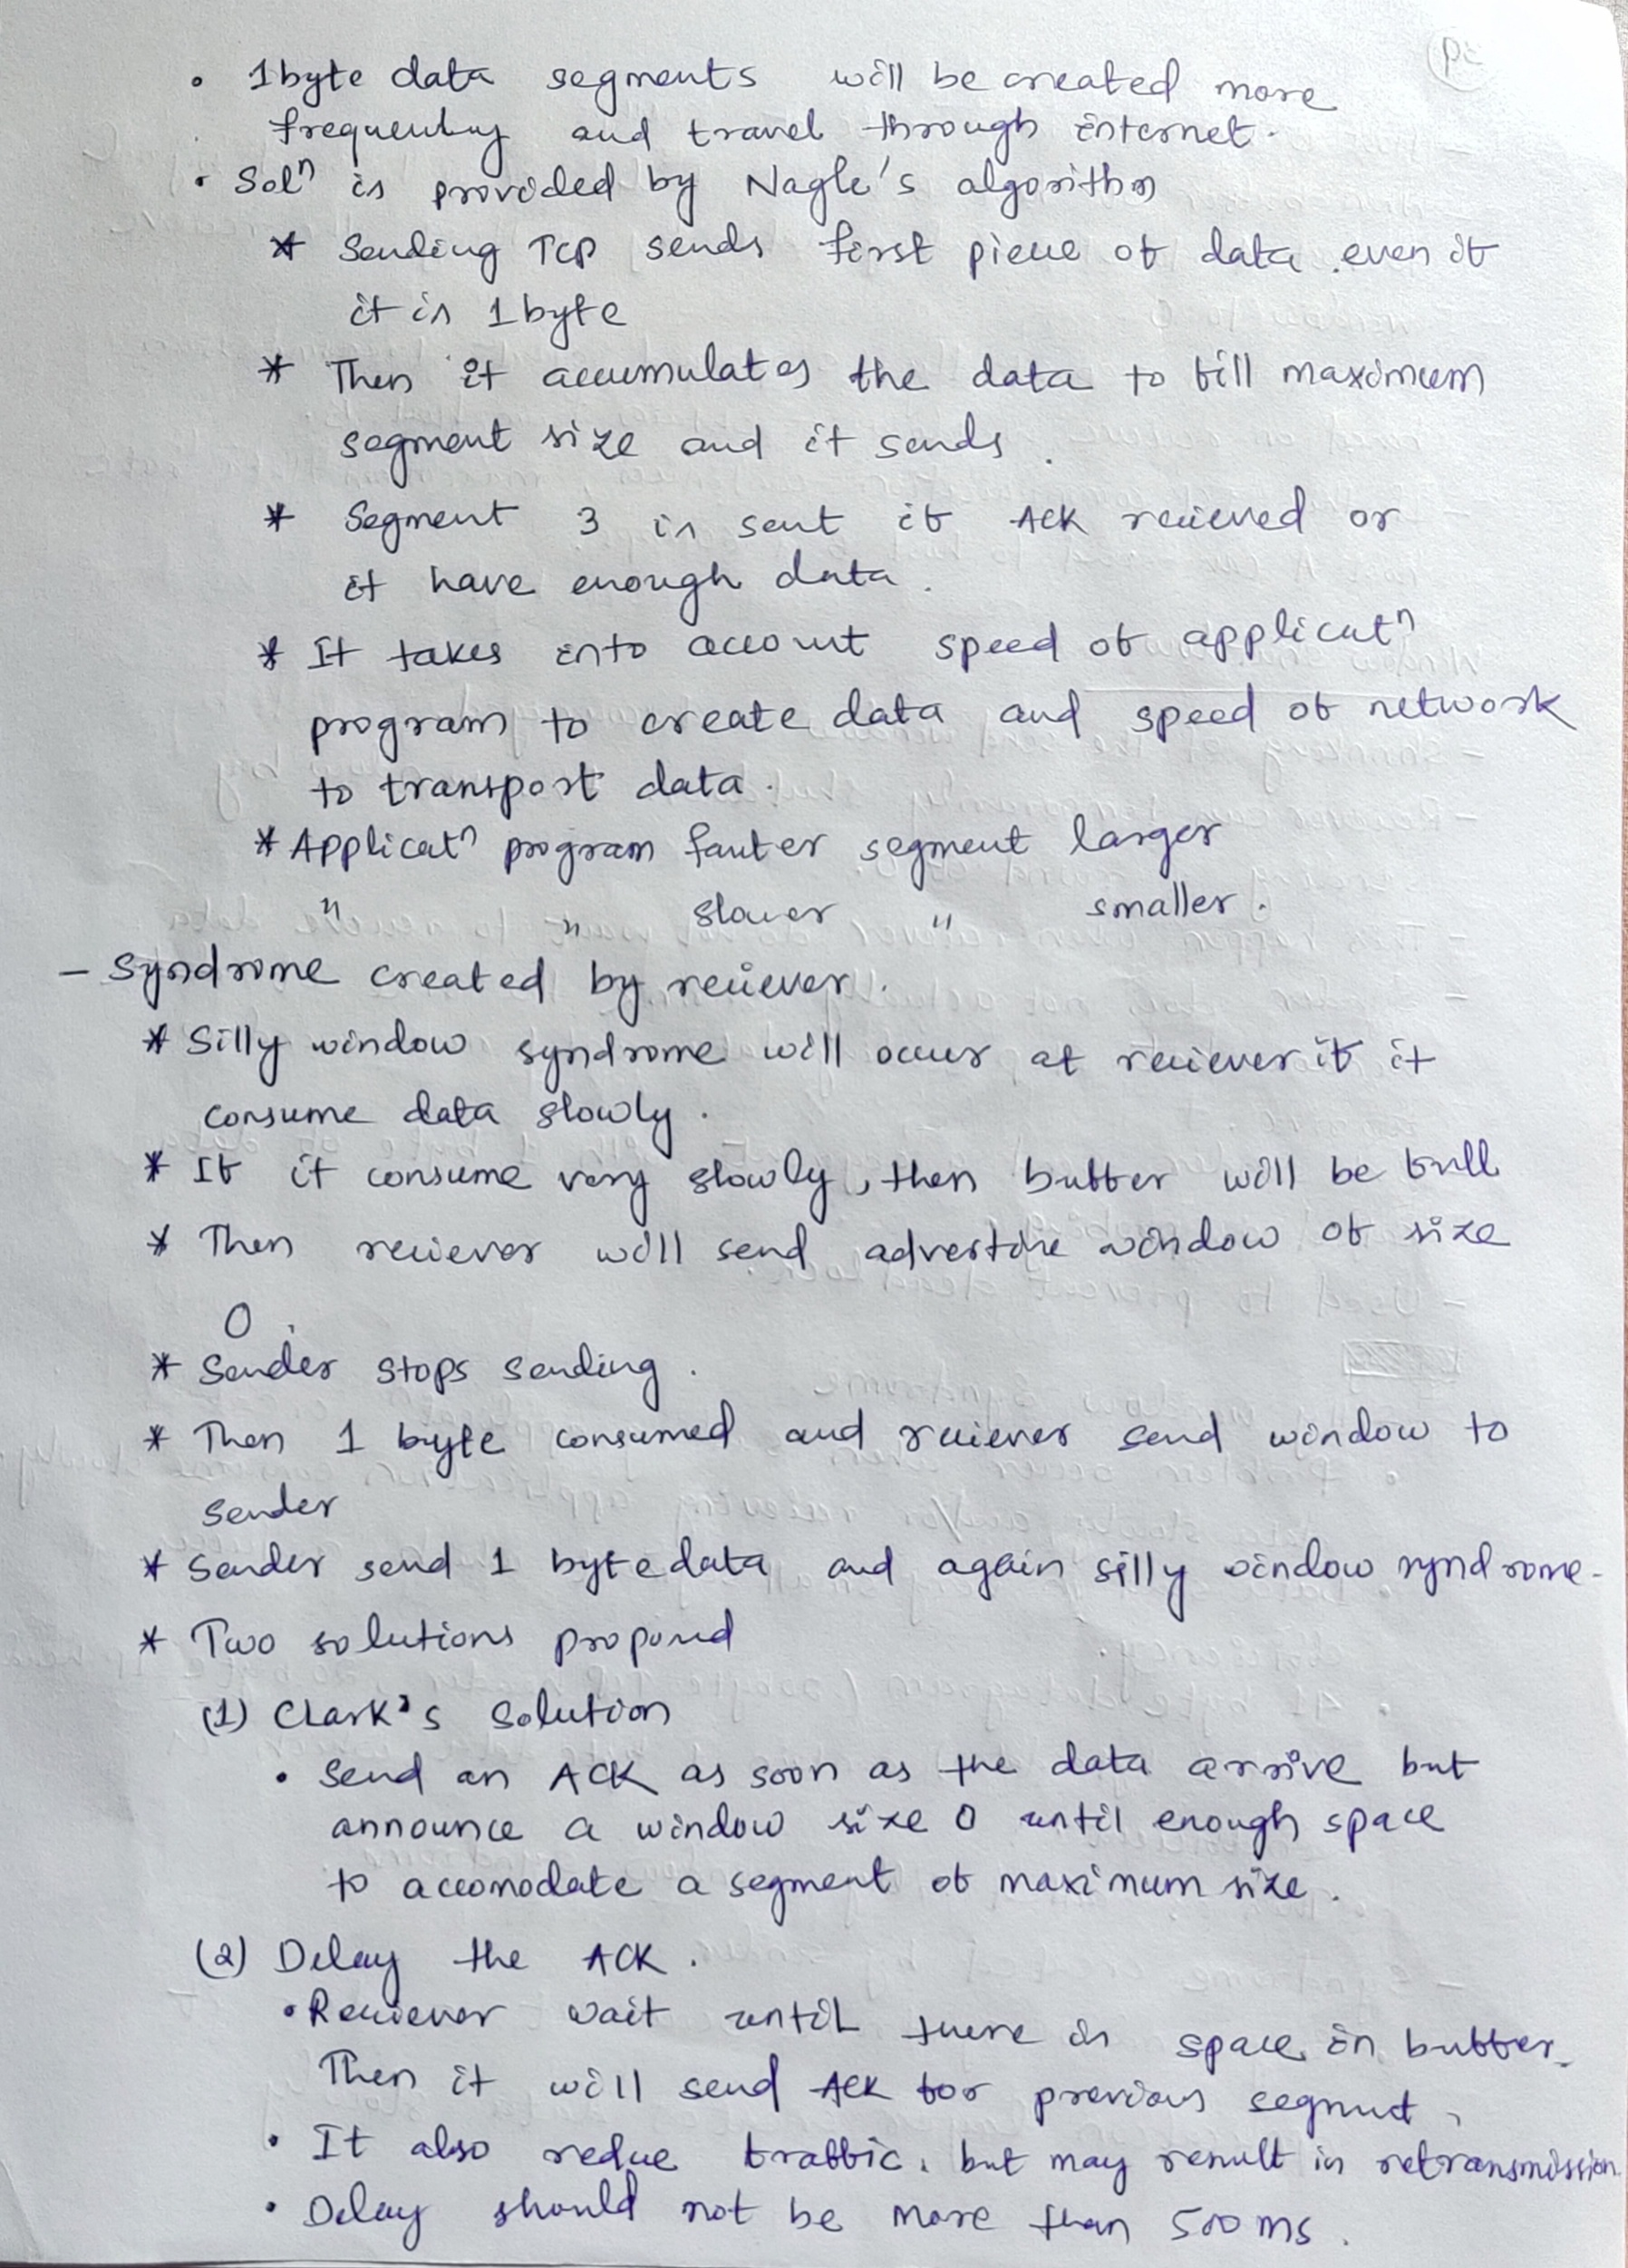 • 1byte data segments will be created more
frequently and travel through internet.
• Solⁿ is provided by Nagle's algorithm
* Sending TCP sends first piece of data even if
it is 1 byte
* Then it accumulates the data to fill maximum
segment size and it sends.
* Segment 3 is sent if ACK recieved or
it have enough data.
* It takes into account speed of applicatⁿ
program to create data and speed of network
to transport data.
* Applicatⁿ program faster segment larger
" " slower " smaller.
- Syndrome created by reciever.
* Silly window syndrome will occur at reciever if it
consume data slowly.
* If it consume very slowly, then buffer will be full
* Then reciever will send advertise window of size
0.
* Sender stops sending.
* Then 1 byte consumed and reciever send window to
sender
* Sender send 1 byte data and again silly window syndrome.
* Two solutions proposed
(1) Clark's solution
• Send an ACK as soon as the data arrive but
announce a window size 0 until enough space
to accomodate a segment of maximum size.
(2) Delay the ACK.
• Reciever wait until there is space in buffer.
Then it will send ACK for previous segment.
• It also reduce traffic, but may result in retransmission.
• Delay should not be more than 500 ms.